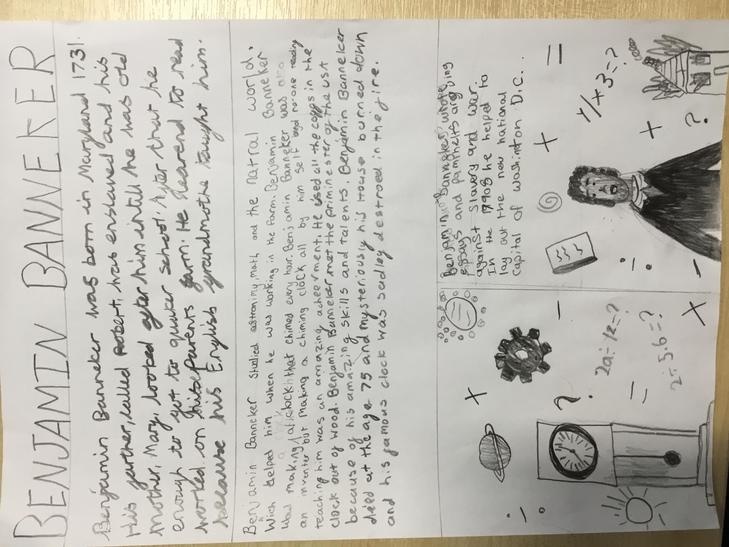 BENJAMIN BANNEKER
Benjamin Banneker was born in Maryland 1731.
His garther, called Robert, was enslaved and his
mother, Mary, looked after him until he has old
enough to got to quaker school. After that he
worked on his parents farm. He learend to read
because his English grandmothe taught him.
Benjamin Banneker studied astronimy, math and the natral world,
Wich helped him when he was working in the farm. Benjamin Banneker
was making a clock that chimed every hour. Benjamin Banneker was
an inventer but making a chiming clock all by him self and no one
reaching him was an amazing acheerment. He used all the coggs in the
clock out of wood. Benjamin Banneker met the priminester of the USA
because of his amazing skills and talents. Benjamin Banneker
died at the age 75 and mysteriously his house burned down
and his famous clock was sadley destroed in the fire.
Benjamin Banneker wrote
essays and pamhlets arguing
against slavery and war.
In the 1790s he helped to
lay out the new national
capital of wasinton D.C..
1/1+3=?
?
2a÷1z=?
2÷5.6=?
?